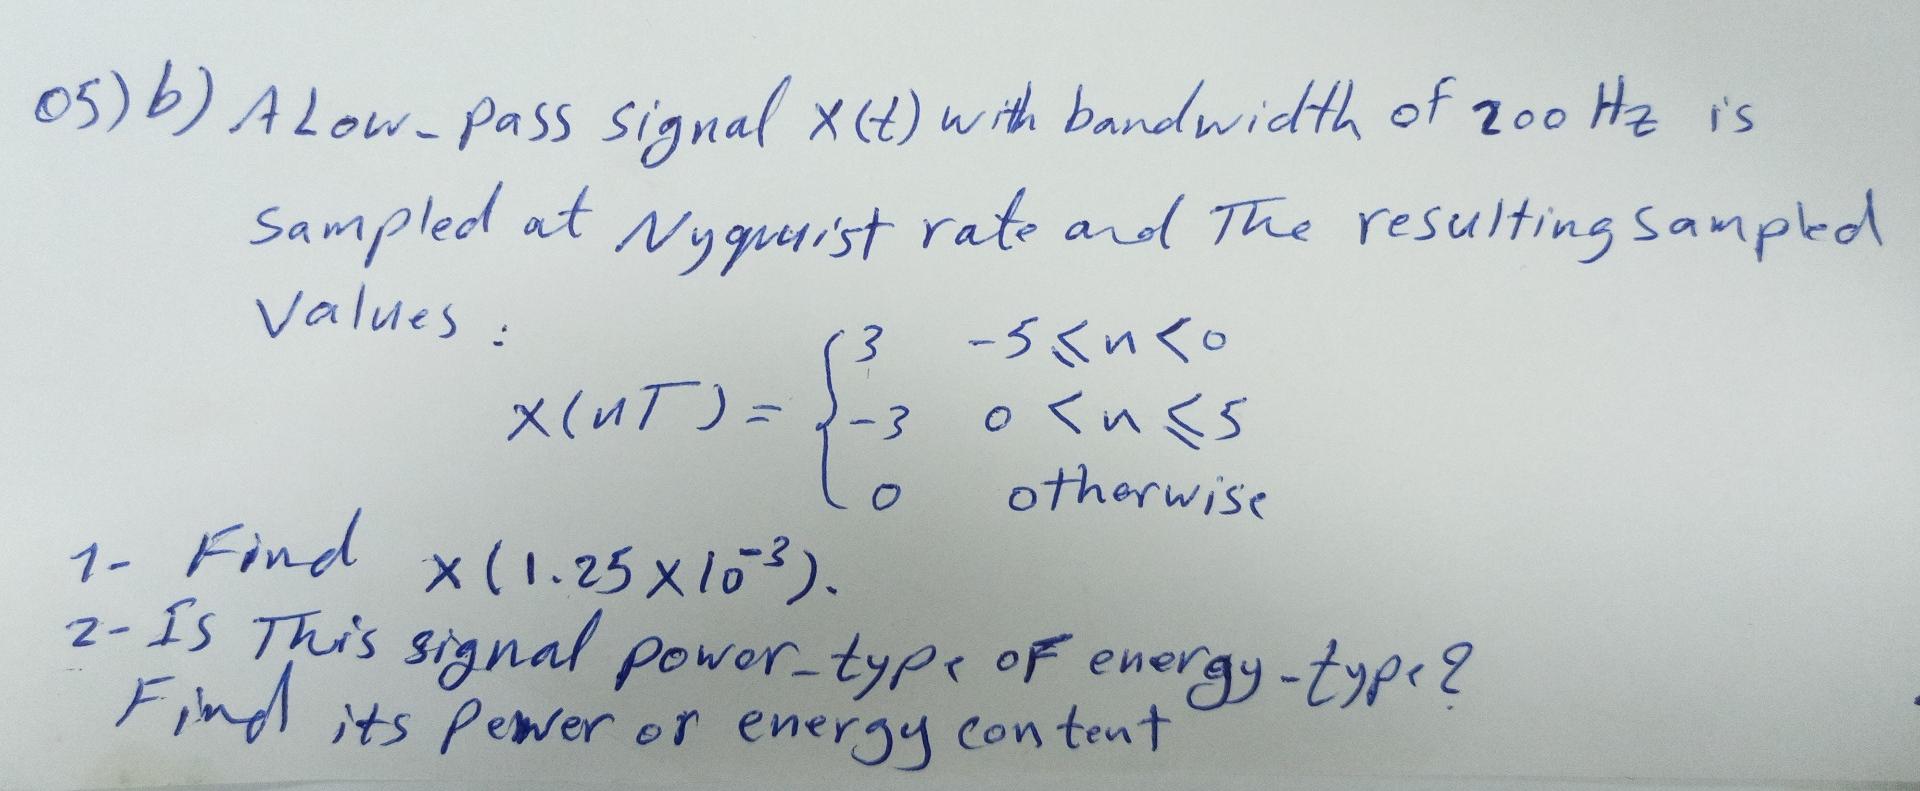 05) b) A Low-pass signal x(t) with bandwidth of 200 Hz is
sampled at Nyquist rate and The resulting sampled
Values :
x(nT) = { 3 -5 ⩽ n < 0
-3 0 < n ⩽ 5
0 otherwise
1- Find x(1.25 x 10⁻³).
2- Is This signal power-type of energy-type?
Find its Power or energy content